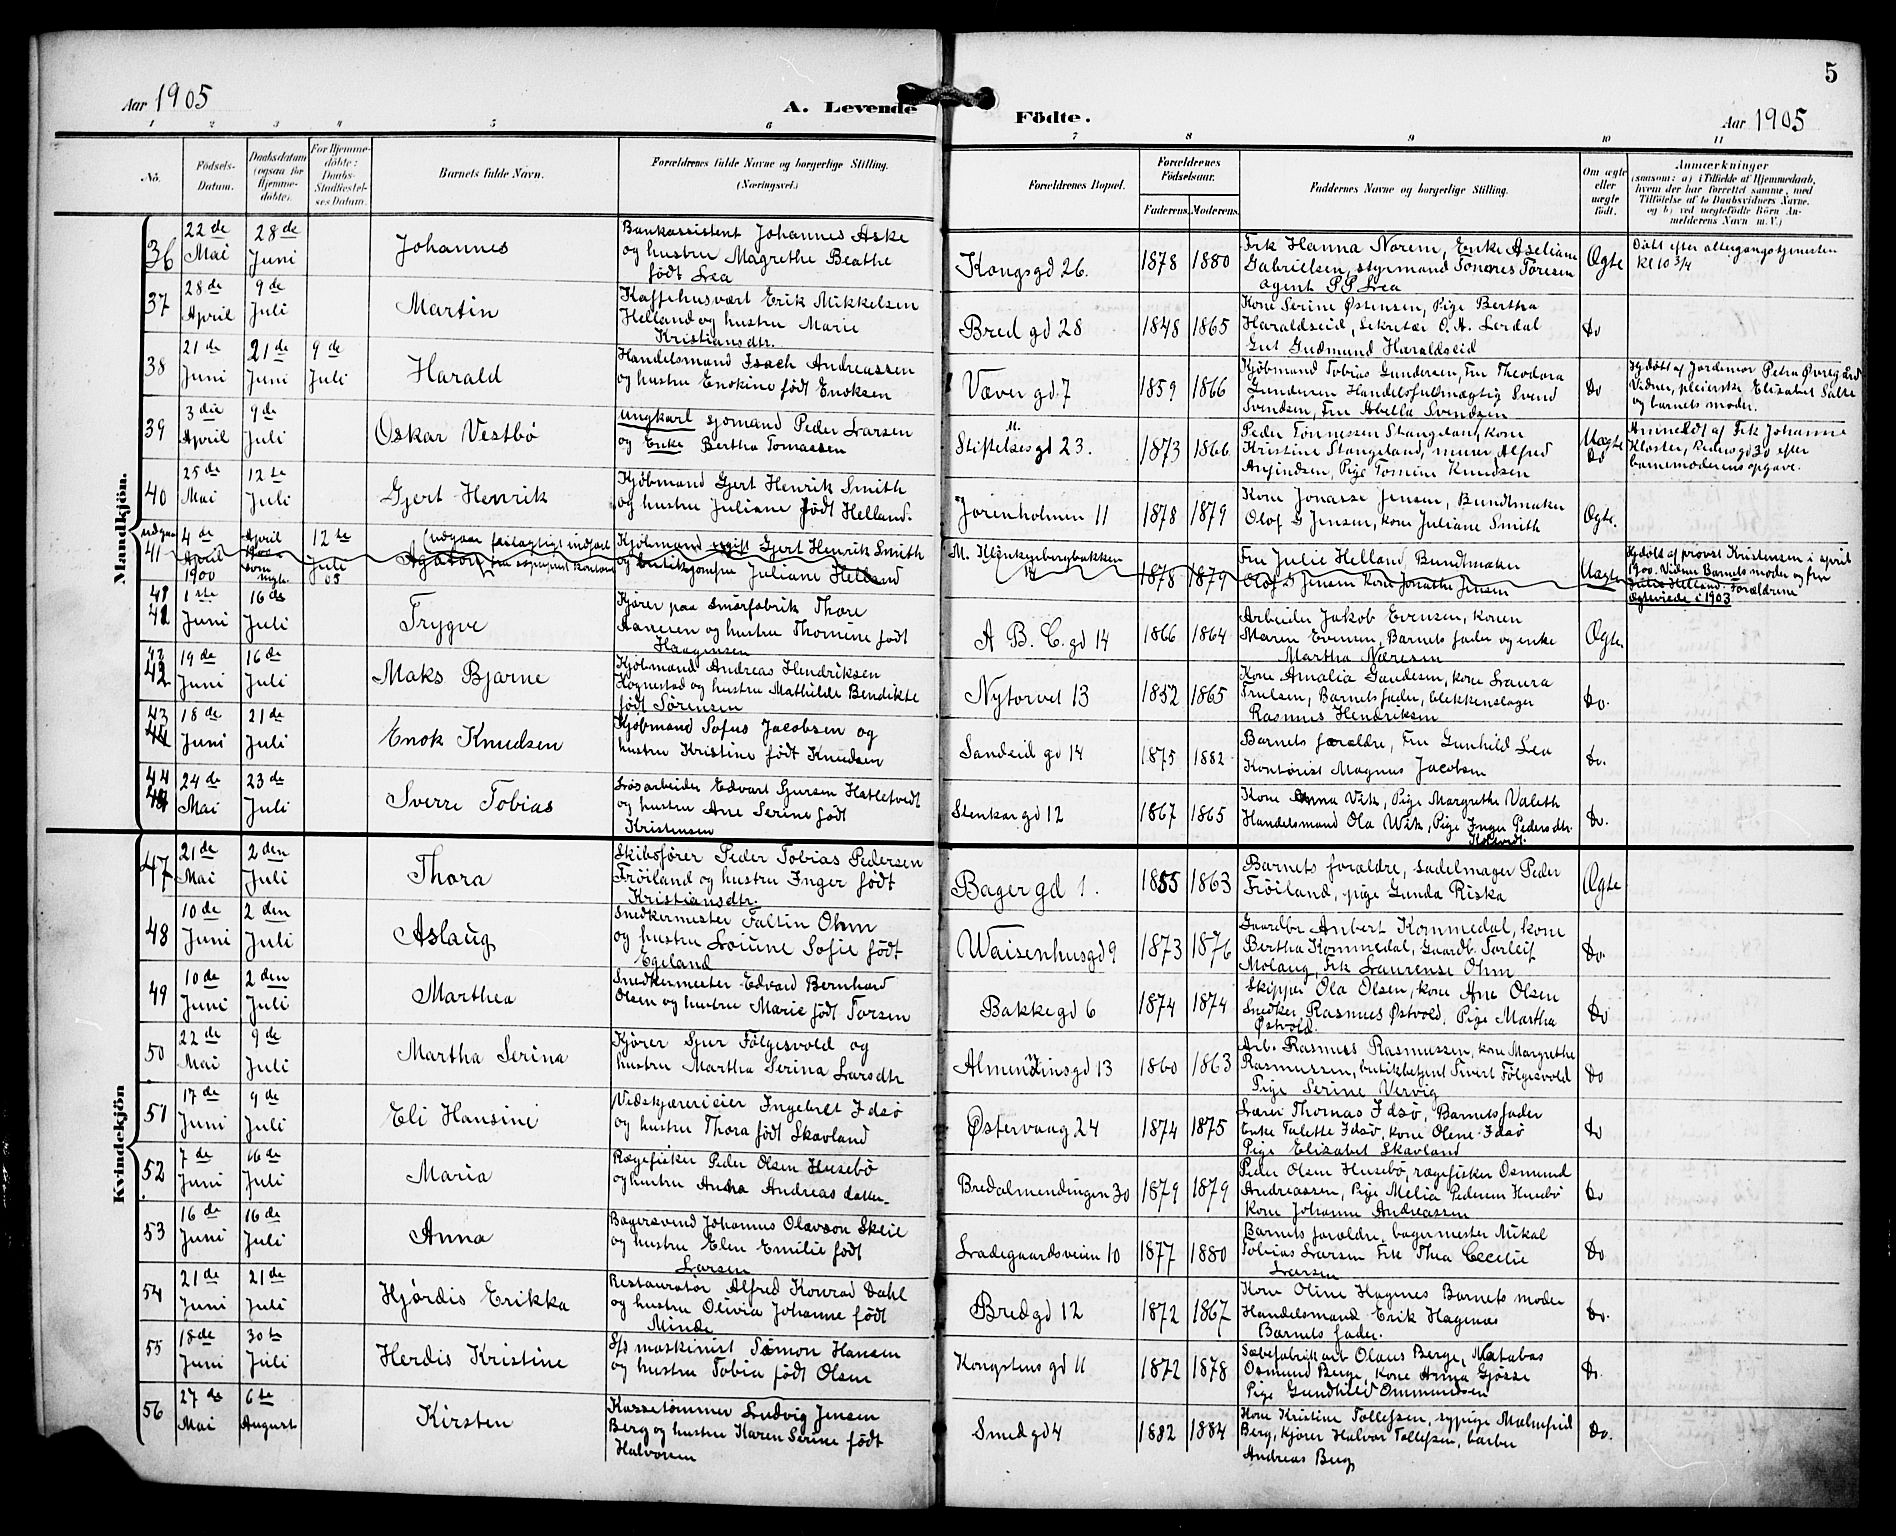 5
Aar 1905
A. Levende Födte.
Aar 1905
1 2 3 4 5 6 7 8 9 10 11
No.
Födsels-
Datum.
Daabsdatum
(ogsaa for
Hjemme-
döbte).
For Hjemme-
döbte:
Daabs-
Stadfæstel-
ses Datum.
Barnets fulde Navn.
Forældrenes fulde Navne og borgerlige Stilling.
(Næringsvei.)
Forældrenes Bopæl.
Forældrenes
Födselsaar.
Faderens. Moderens.
Faddernes Navne og borgerlige Stilling.
Om ægte
eller
uægte
födt.
Anmærkninger
(saasom: a) i Tilfælde af Hjemmedaab,
hvem der har forrettet samme, med
Tilföielse af to Daabsvidners Navne.
og b) ved uægtefödte Börn An-
melderens Navn m. V.)
Mandkjön.
36
22de
Mai
28de
Juni
Johannes
Bankassistent Johannes Aske
og hustru Magrethe Beathe
født Lea
Kongsgd 26.
1878
1880
Frk Hanna Norem, Enke Aseliane
Gabrielsen, styrmand Tonnes Toresen
agent P P Lea
Ægte
Døbt efter altergangstjenesten
Kl 10 3/4
37
28de
April
9de
Juli
Martin
Kaffehusvært Erik Mikkelsen
Helland og hustru Marie
Kristiansdtr.
Bred gd 28
1848
1865
Kone Serine Østensen, Pige Bertha
Haraldseid, Sekretær O. A. Lerdal
Gut Gudmund Haraldseid
Do
38
21de
Juni
21de
Juni
9de
Juli
Harald
Handelsmand Isach Andreassen
og hustru Enokine født Enoksen
Væver gd 7
1859
1866
Kjøbmand Tobias Gundersen, Fru Theodora
Gundersen Handelsfuldmægtig Svend
Svendsen, Fru Abella Svendsen
Do
Hjdøbt af Jordemor Petra
Vidner, pleierske Elizabet Salte
og barnets moder.
39
3die
April
9de
Juli
Oskar Vestbø
Ungkarl sjømand Peder Larsen
og Enke Bertha Tomassen
M.
Stiftelsesgd 23.
1873
1866
Peder Tønnessen Stangeland, kone
Kristine Stangeland, murer Alfred
Anfindsen, Pige Tomine Knudsen
Uægte
Do
Anmeldt af Frk Johanne
Kloster, Pedersgd 30 efter
barnemoderens opgave.
40
25de
Mai
12te
Juli
Gjert Henrik
Kjøbmand Gjert Henrik Smith
og hustru Juliane født Helland.
Jorenholmen 11
1878
1879
Kone Jonasse Jensen, Bundtmaker
Olof G Jensen, kone Juliane Smith
Ægte.
udgaar
41
4de
April
1900
April
1900
som
uægte
12te
Juli
05
(udgaar feilagtigt indført
Agaton
Kjøbmand ugift Gjert Henrik Smith
og butikjomfru Juliane Helland
M. Blenkenbergbakken
1878
1879
Fru Julie Helland, Bundtmaker
Olof G Jensen kone Jonathe Jensen
Uægte
Hjdøbt af provst Kristensen i april
1900. Vidner Barnets moder og fru
Julie Helland. Forældrene
Ægteviede i 1903
41
1ste
Juni
16de
Juli
Trygve
Kjører paa Smørfabrik Thore
Aanesen og hustru Thomine født
Haagensen
A B. C. gd 14
1866
1864
Arbeider Jakob Evensen, konen
Maren Evensen, Barnets fader og enke
Martha Næresen
Ægte.
42
19de
Juni
16de
Juli
Maks Bjarne
Kjøbmand Andreas Hendriksen
Hognestad og hustru Mathilde Bendikte
født Sørensen
Nytorvet 13
1852
1865
Kone Amalia Gundesen, kone Laura
Truelsen, Barnets fader, blekkenslager
Rasmus Hendriksen
Do.
43
18de
Juni
21de
Juli
Enok Knudsen
Kjøbmand Sofus Jacobsen og
hustru Kristine født Knudsen
Sandeid gd 14
1875
1882
Barnets forældre, Fru Gunhild Lea
Kontorist Magnus Jacobsen
Do.
44
24de
Mai
23de
Juli
Sverre Tobias
Løsarbeider Edvart Sjursen Hatletvedt
og hustru Ane Serine født
Kristensen
Stenkar gd 12
1867
1865
Kone Anna Vik, Pige Margrethe Valeth
Handelsmand Ola Wik, Pige Inger Pedersdtr.
Do.
Kvindekjön
47
21de
Mai
2den
Juli
Thora
Skibsfører Peder Tobias Pedersen
Frøiland og hustru Inger født
Kristiansdtr.
Bager gd 1.
1855
1863
Barnets forældre, sadelmager Peder
Frøiland, pige Gunda Riska
Ægte
48
10de
Juni
2den
Juli
Aslaug
Snedkermester Faltin Ohm
og hustru Lovine Sofie født
Egeland
Waisenhusgd 9
1873
1876
Gaardbr Anbert Kommedal, kone
Bertha Kommedal, Gaardb. Torleif
Molaug, Frk Laurense Ohm
Do.
49
10de
Juni
2den
Juli
Marthea
Snedkermester Edvard Bernhard
Olsen og hustru Marie født Torsen
Bakkegd 6
1874
1874
Skipper Ola Olsen, kone Ane Olsen
Snedker Rasmus Østvold, Pige Martha
Østvold.
Do
50
22de
Mai
9de
Juli
Martha Serina
Kjører Sjur Følgesvold og
hustru Martha Serina Larsdtr
Almendinsgd 13
1860
1863
Arb. Rasmus Rasmussen, kone Margrethe
Rasmussen, butikbetjent Sivert Følgesvold
Pige Serine Vervig
Do
51
17de
Juni
9de
Juli
Eli Hansine
Vedskjæreieier Ingebret Idsø
og hustru Thora født Skavland
Østervaag 24
1874
1875
Lærer Thomas Idsø, Barnets fader
Enke Talette Idsø, kone Olene Idsø
Pige Elizabet Skavland
Do
52
7de
Juni
16de
Juli
Maria
Rægefisker Peder Olsen Husebø
og hustru Anna Andreas datter
Bredalmendingen 30
1879
1879
Peder Olsen Husebø, rægefisker Osmund
Andreassen, Pige Melia Pedersen Husebø
Kone Johanne Andreassen
Do
53
16de
Juni
16de
Juli
Anna
Bagersvend Johannes Olavson Skeie
og hustru Elen Emilie født
Larsen
Ladegaardsveien 10
1877
1880
Barnets forældre, bagermester Mikal
Tobias Larsen Frk Thea Cecelie
Larsen
Do
54
21de
Juni
21de
Juli
Hjørdis Erikka
Restauratør Alfred Konrad Dahl
og hustru Olivia Johanne født
Minde
Bredgd 12
1872
1867
Kone Oline Hagnes Barnets moder
Handelsmand Erik Hagenæs
Barnets fader.
Do.
55
18de
Juni
30te
Juli
Herdis Kristine
S/s maskinist Simon Hansen
og hustru Tobia født Olsen
Kongstens gd 11
1872
1878
Sæbefabrikarb Olaus Berge, Matabas
Osmund Berge, kone Anna Gjøsse
Pige Gundhild Ommundsen
Do.
56
27de
Mai
6te
August
Kirsten
Kassetømmer Ludvig Jensen
Berg og hustru Karen Serine født
Halvorsen
Smedgd 4
1882
1884
Kone Kristine Tollefsen, sypige Malmfrid
Berg, kjører Halvor Tollefsen, barber
Andreas Berg
Do.